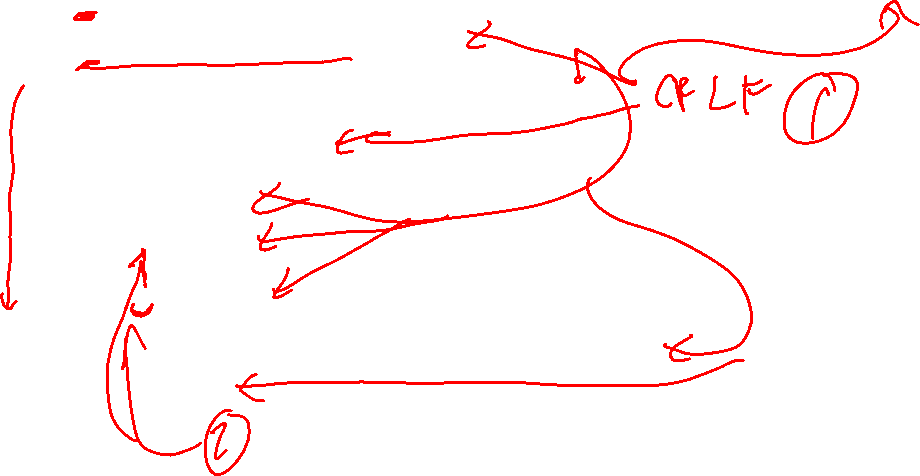 CRLF ①
②